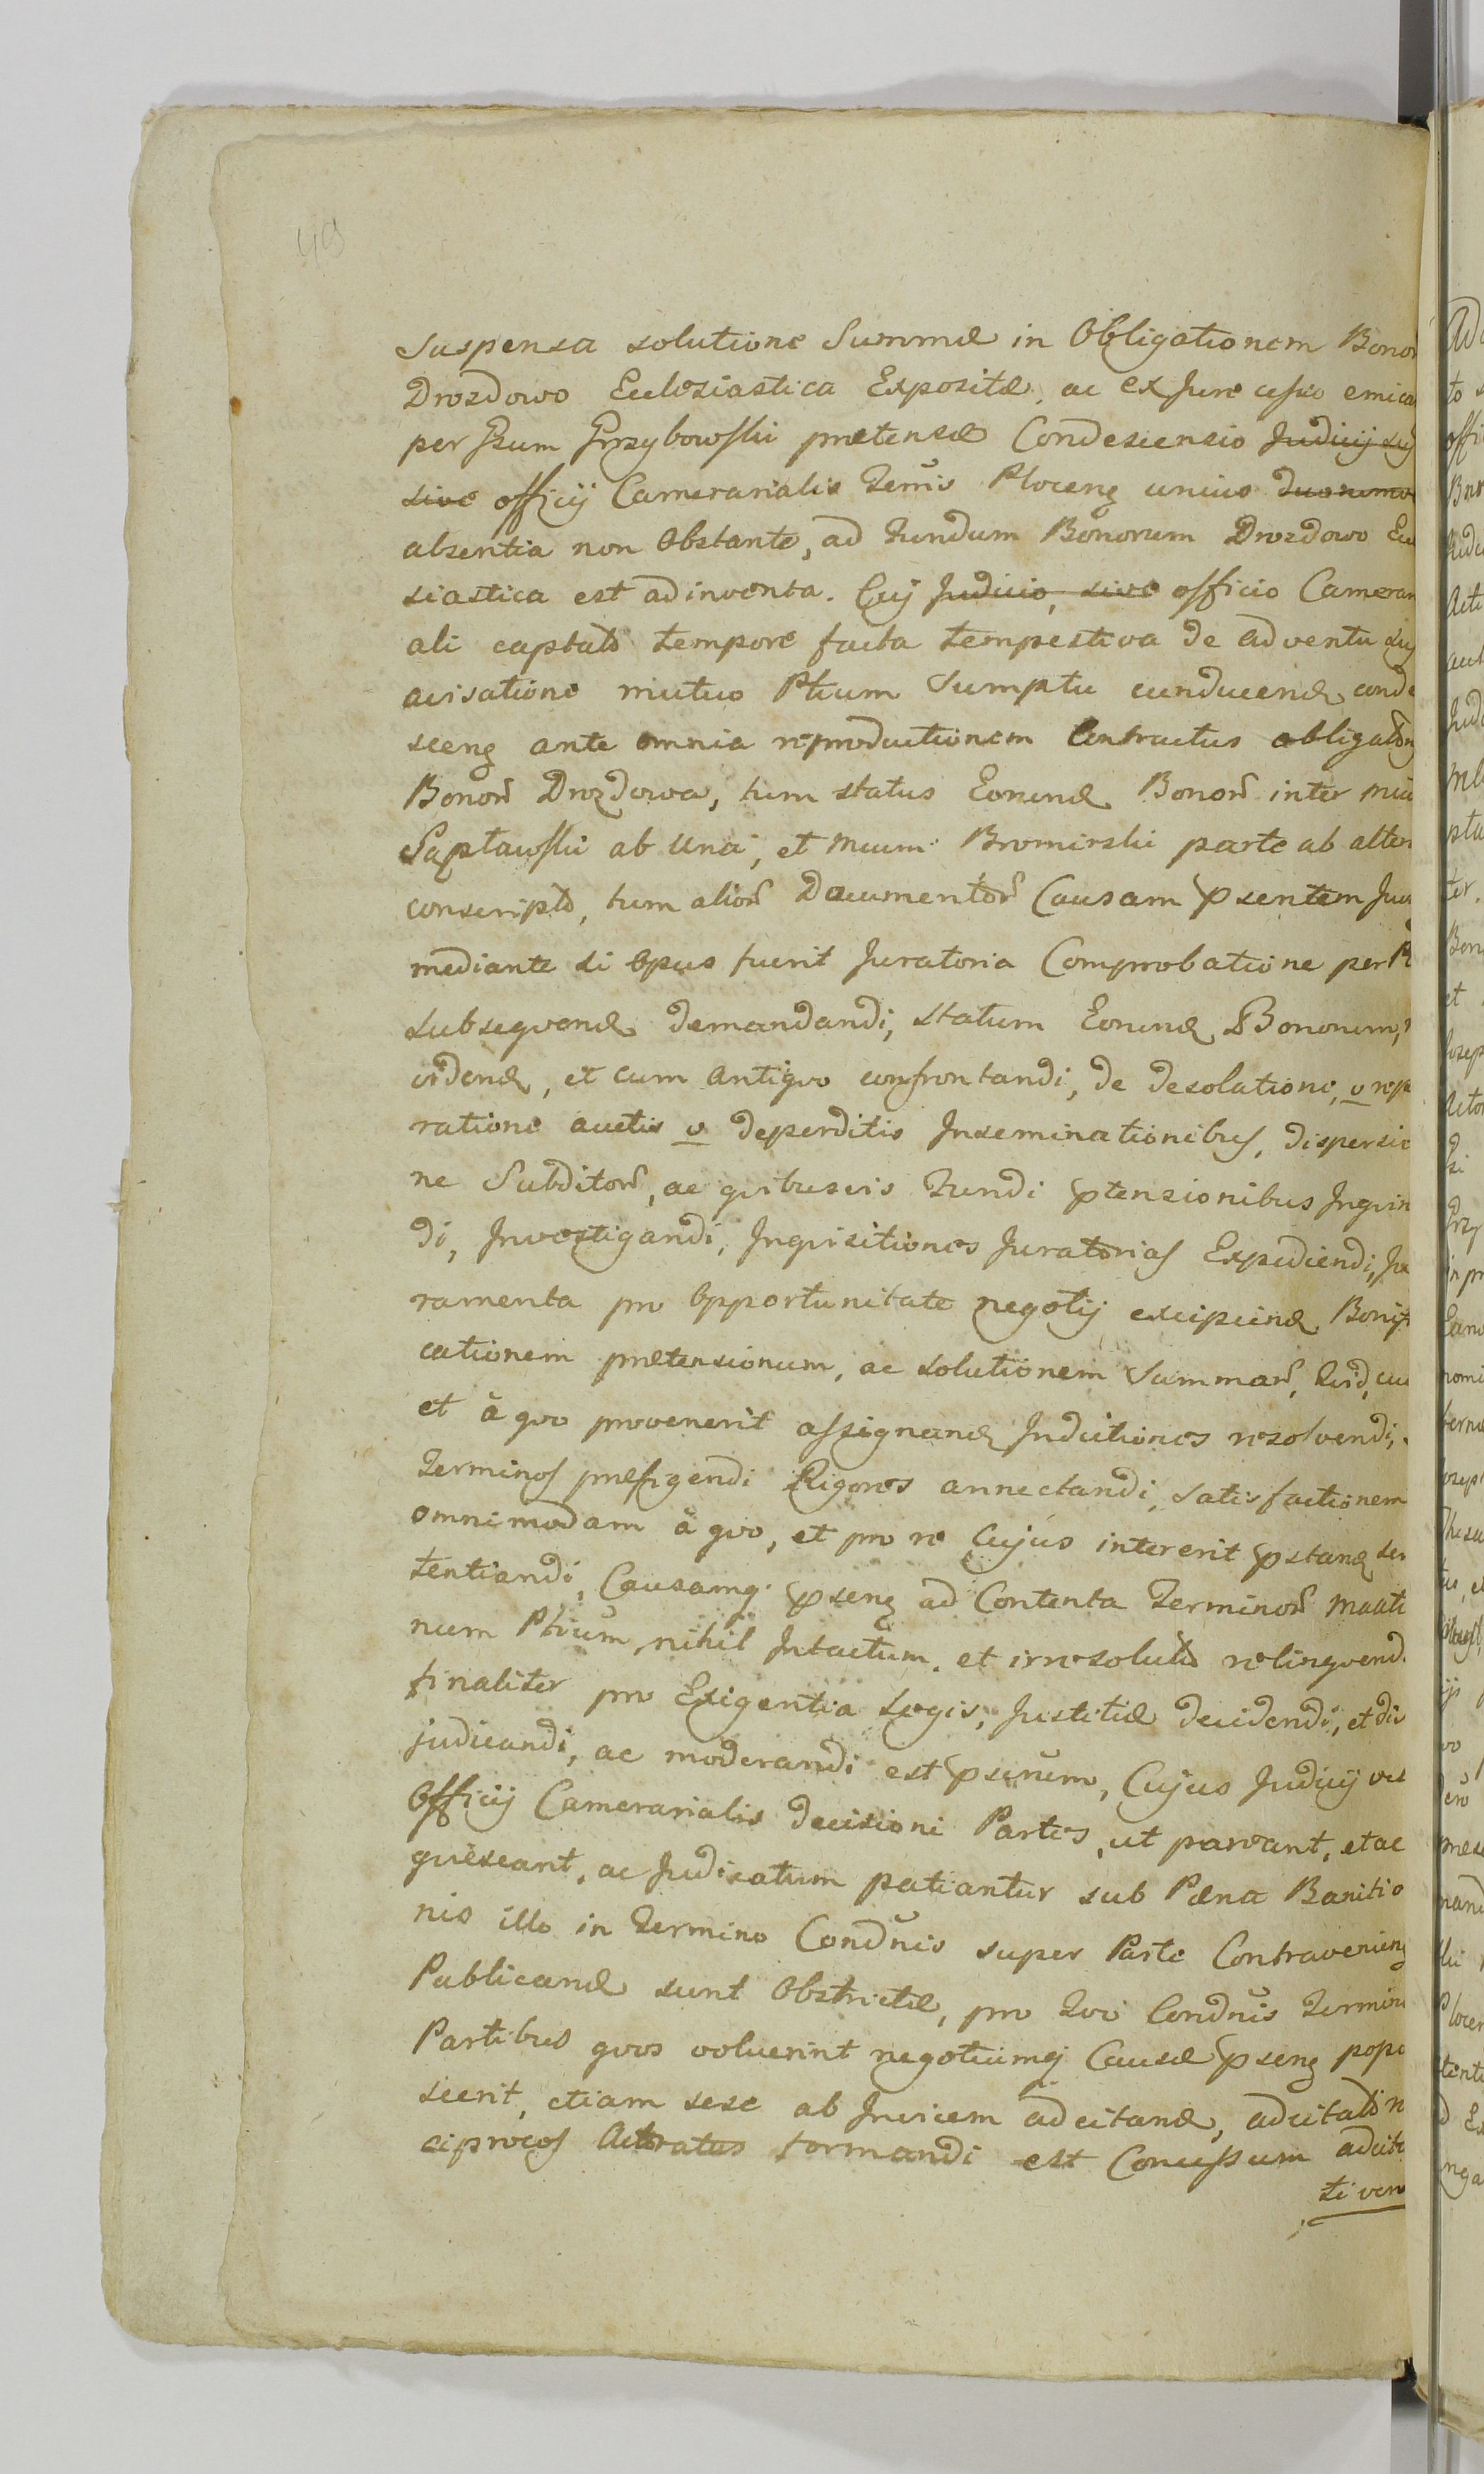 49
Suspensa solutione Summæ in Obligationem Bonor
Drozdowo Ecclesiastica Expositæ, ac ex Jure cesso
per Grzybowski prætensæ Condescensio Judicij suj
sive officij Camerarialis Plocens unius duorumve
absentia non Obstante, ad fundum Bonorum Drozdowo Ecc
siastica est adinventa. Cuj Judicio, sive officio Camerari
ali captato tempore facta tempestiva de adventu suj
avisatione mutuo Ptium Sumptu conducend conde
scens ante omnia reproductionem Contractus obligatorij
Bonor Drozdowa, tum status Eorund Bonor inter
ab Una, et Bromirski parte ab alter
conscripto, tum alior Documentor Causam psentem
mediante si Opus fuerit Juratoria Comprobatione per
subseqvend demandandi, statum Eorund Bonorum,
vidend, et cum antiqvo confrontandi, de desolatione, v repa
ratione auctis v deperditis Inseminationibus, dispersio
ne Subditor, ac qvibusvis fundi ptensionibus Inqvi
di, Investigandi, Inqvisitiones Juratorias Expediendi, Ju
ramenta pro Opportunitate negotij excipiend Bonifi
cationem prætensionum, ac solutionem Summar, qvid, cui
et à qvo provenerit assignand Inductiones resolvendi,
Terminos præfigendi Rigores annectandi, satisfactionem
omnimodam à qvo, et pro re Cujus intererit pstand sen
tentiandi, Causamq psens ad Contenta Terminor
num Ptium, nihil Intactum, et irresoluto relinqvend
finaliter pro Exigentia Legis, Justitiæ decidendi, et di
judicandi, ac moderandi est, Cujus Judicij vel
Officij Camerarialis decisioni Partes, ut pareant, et ac
qviescant, ac Judicatum patiantur sub Pæna Banitio
nis illo in Termino Condnis super Parte Contravenien
Publicand sunt Obstrictæ, pro qvo Condnis Termino
Partibus qvos voluerint negotiumq Causæ psens popo
scerit, etiam sese ab Invicem adcitand, adcitato re
ciprocos Actoratus formandi est Concessum adcita
ti vero